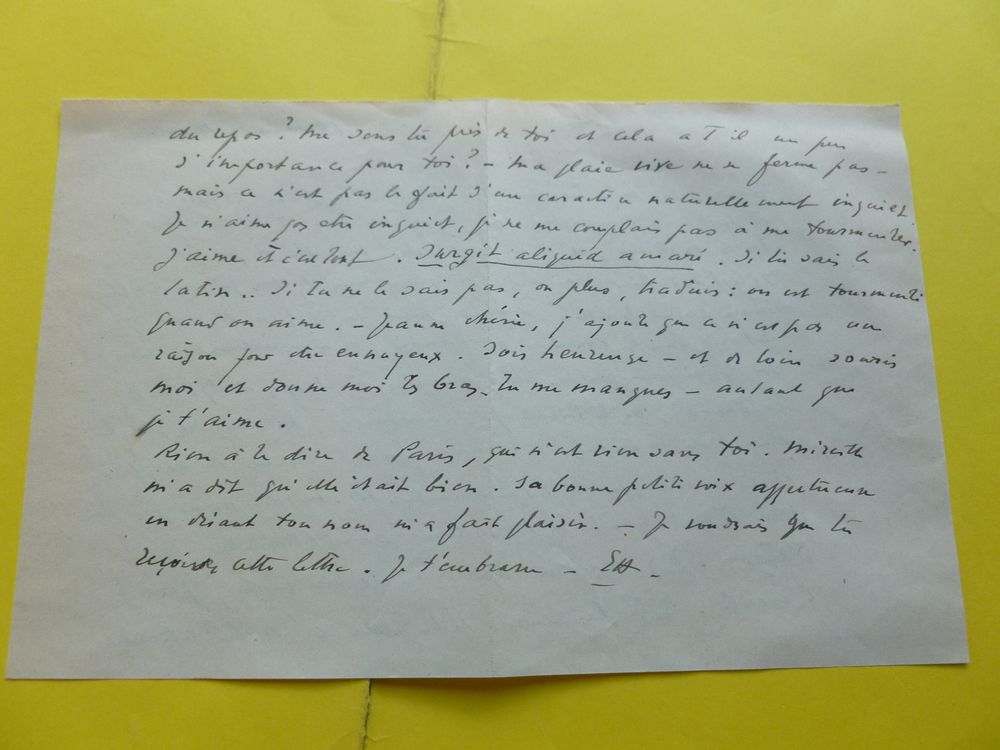 du repos ? Me sens tu près de toi et cela a T il un peu
d'importance pour toi ? – Ma plaie vive ne se ferme pas –
mais ce n'est pas le fait d'un caractère naturellement inquiet.
Je n'aime pas être inquiet, je ne me complais pas à me tourmenter.
J'aime et c'est tout. Surgit aliquid amari. Si tu sais le
latin .. Si tu ne le sais pas, ou plus, traduis : on est tourmenté
quand on aime. – Jeanne chérie, j'ajoute que ce n'est pas une
raison pour être ennuyeux. Sois heureuse – et de loin souris
moi et donne moi tes bras. Tu me manques – autant que
je t'aime.
Rien à te dire de Paris, qui n'est rien sans toi. Mireille
m'a dit qu'elle était bien. Sa bonne petite voix affectueuse
en disant ton nom m'a fait plaisir. – Je voudrais que tu
reçoives cette lettre. Je t'embrasse – EH –